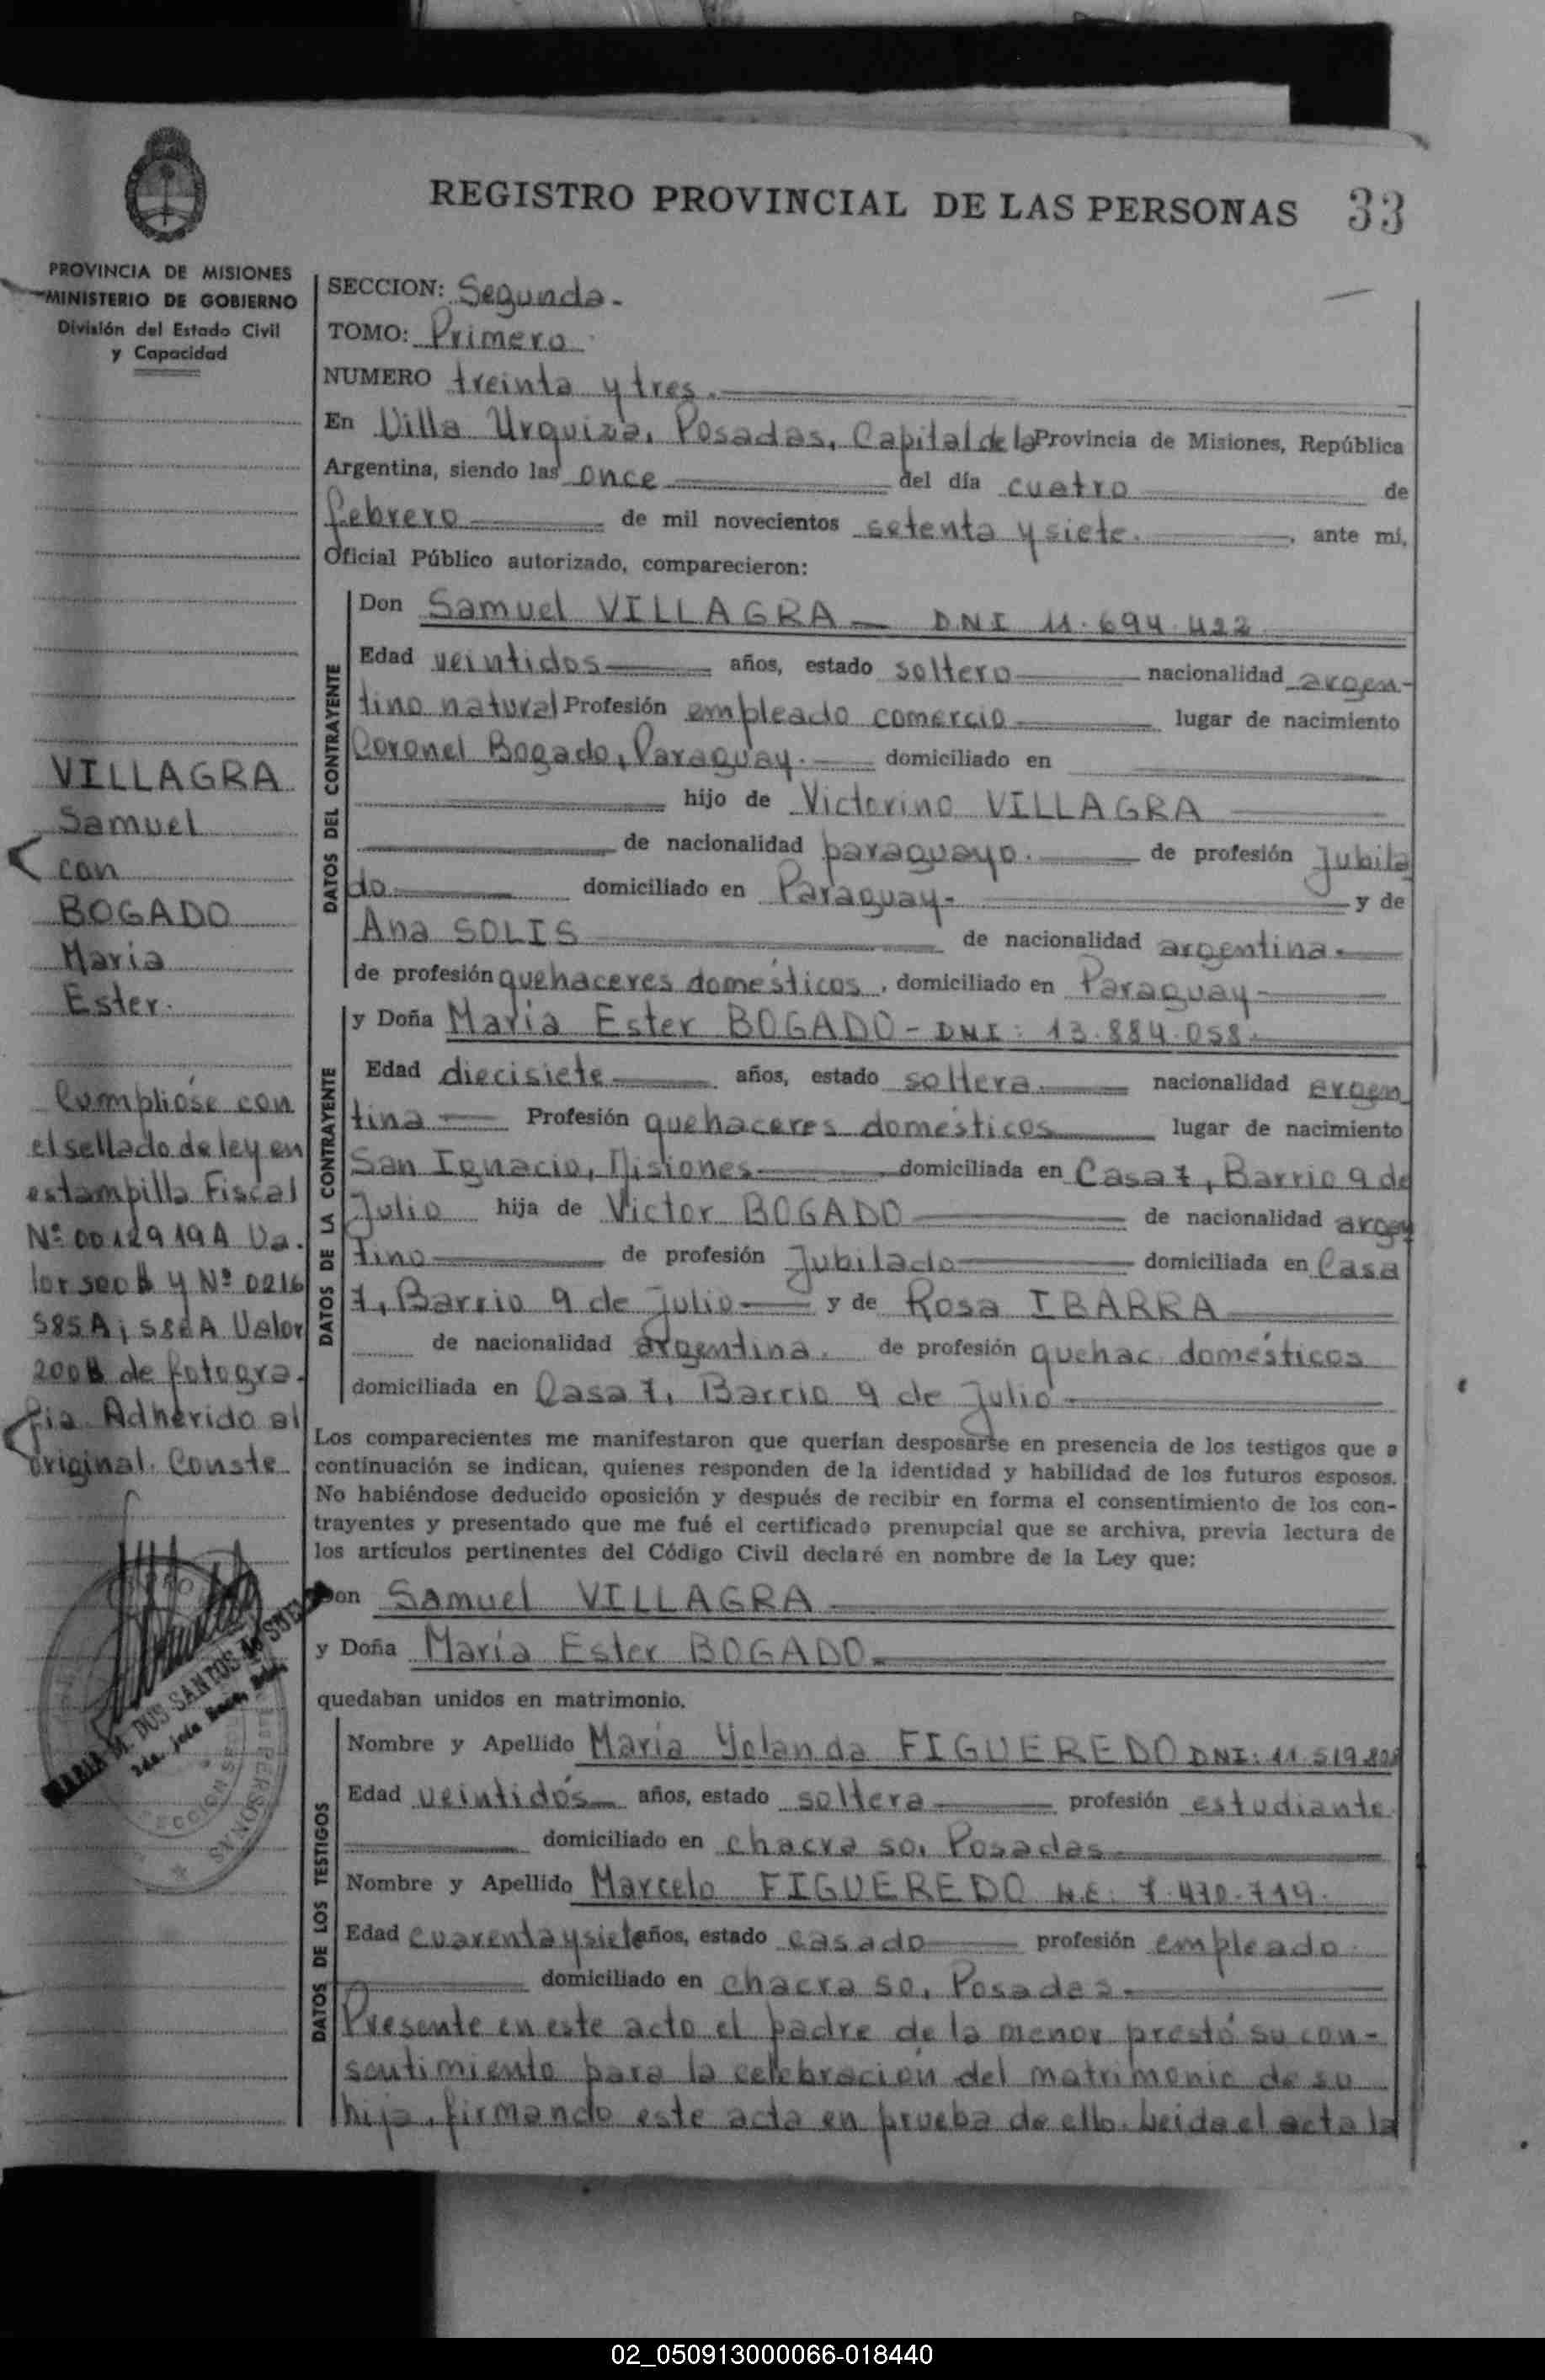 REGISTRO PROVINCIAL DE LAS PERSONAS 33
PROVINCIA DE MISIONES
MINISTERIO DE GOBIERNO
División del Estado Civil
y Capacidad
SECCION: Segunda.
TOMO: Primero
NUMERO treinta y tres.
En Villa Urquiza, Posadas, Capital de la Provincia de Misiones, República
Argentina, siendo las once del día cuatro de
febrero de mil novecientos setenta y siete. , ante mí,
Oficial Público autorizado, comparecieron:
DATOS DEL CONTRAYENTE
Don Samuel VILLAGRA - DNI 11.694.422
Edad veintidos años, estado soltero nacionalidad argen-
tino natural Profesión empleado comercio lugar de nacimiento
Coronel Bogado, Paraguay. domiciliado en
hijo de Victorino VILLAGRA
de nacionalidad paraguayo. de profesión Jubila
do domiciliado en Paraguay. y de
Ana SOLIS de nacionalidad argentina.
de profesión quehaceres domésticos, domiciliado en Paraguay
VILLAGRA
Samuel
con
BOGADO
Maria
Ester.
DATOS DE LA CONTRAYENTE
y Doña Maria Ester BOGADO - DNI: 13.884.058.
Edad diecisiete años, estado soltera nacionalidad argen
tina Profesión quehaceres domésticos lugar de nacimiento
San Ignacio, Misiones domiciliada en Casa 7, Barrio 9 de
Julio hija de Victor BOGADO de nacionalidad argen
tino de profesión Jubilado domiciliada en Casa
7, Barrio 9 de Julio y de Rosa IBARRA
de nacionalidad argentina. de profesión quehac. domésticos
domiciliada en Casa 7, Barrio 9 de Julio
Cumplióse con
el sellado de ley en
estampilla Fiscal
Nº 0012919A Va.
lor 500 $ y Nº 0216
585A; 586A Valor
200$ de fotogra.
fia. Adherido al
original. Conste
Los comparecientes me manifestaron que querían desposarse en presencia de los testigos que a
continuación se indican, quienes responden de la identidad y habilidad de los futuros esposos.
No habiéndose deducido oposición y después de recibir en forma el consentimiento de los con-
trayentes y presentado que me fué el certificado prenupcial que se archiva, previa lectura de
los artículos pertinentes del Código Civil declaré en nombre de la Ley que:
Don Samuel VILLAGRA
y Doña María Ester BOGADO
quedaban unidos en matrimonio.
MARIA M. DOS SANTOS de
SECCION
PERSONAS
DATOS DE LOS TESTIGOS
Nombre y Apellido María Yolanda FIGUEREDO DNI: 11.519.808
Edad veintidós años, estado soltera profesión estudiante
domiciliado en chacra 50, Posadas.
Nombre y Apellido Marcelo FIGUEREDO 7.470.719.
Edad cuarenta y siete años, estado casado profesión empleado.
domiciliado en chacra 50, Posadas.
Presente en este acto el padre de la menor prestó su con-
sentimiento para la celebración del matrimonio de su
hija, firmando este acta en prueba de ello. Leida el acta la
02_050913000066-018440